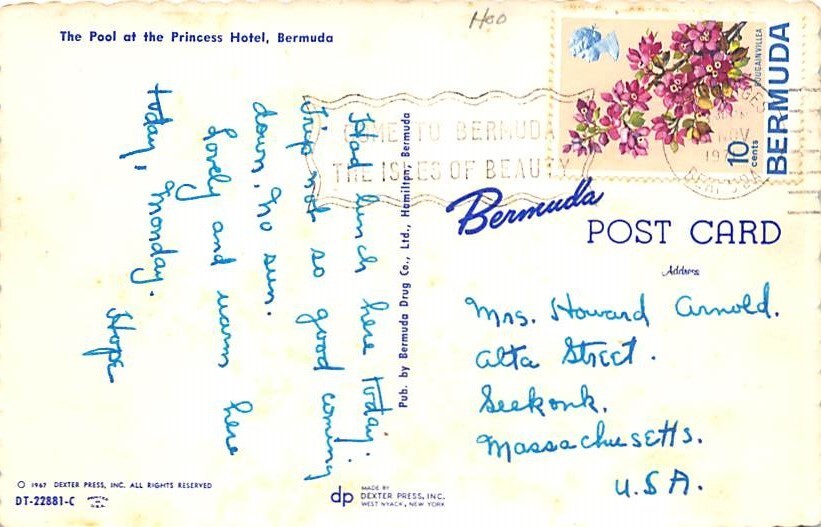 The Pool at the Princess Hotel, Bermuda
Had lunch here today.
Trip not so good coming
down, no sun.
Lovely and warm here
today, Monday.
Hope
Pub. by Bermuda Drug Co., Ltd., Hamilton, Bermuda
Hoo
COME TO BERMUDA
THE ISLES OF BEAUTY
BOUGAINVILLEA
10 cents
BERMUDA
NOV
Bermuda
POST CARD
Address
Mrs. Howard Arnold.
Alta Street.
Seekonk.
Massachusetts.
U.S.A.
© 1967 DEXTER PRESS, INC. ALL RIGHTS RESERVED
DT-22881-C
dp
MADE BY
DEXTER PRESS, INC.
WEST NYACK, NEW YORK